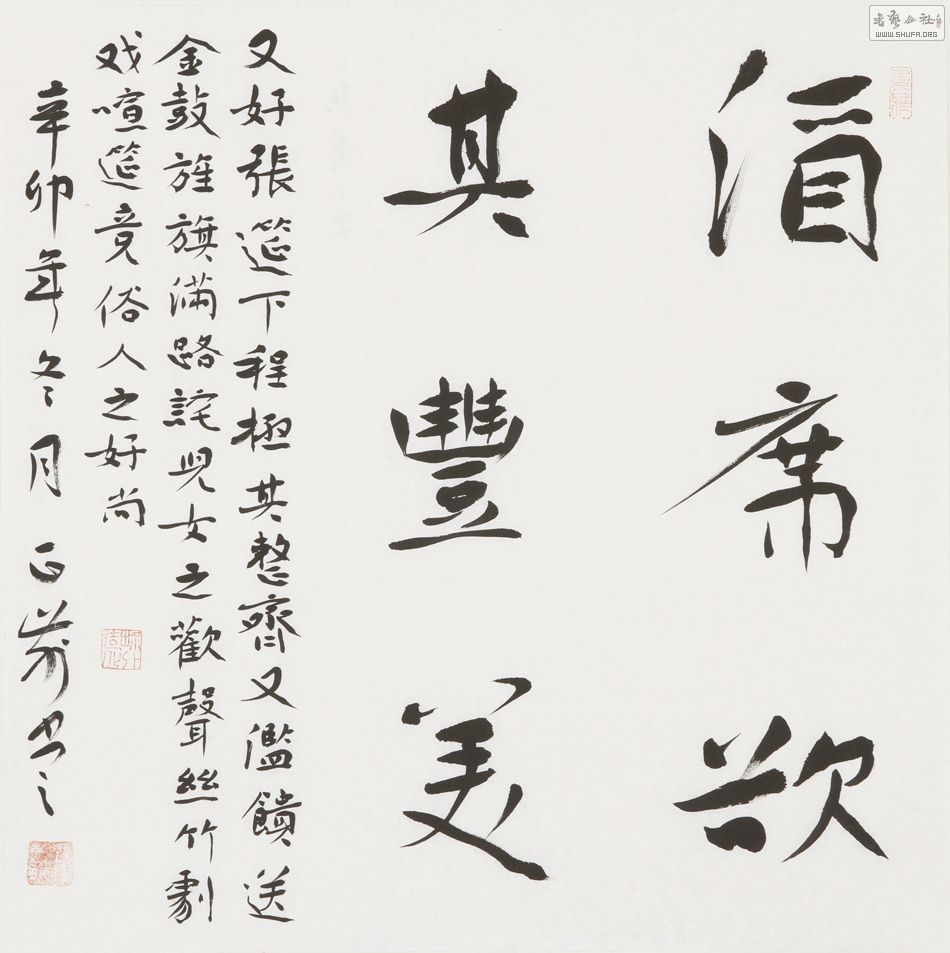 書藝公社
WWW.SHUFA.ORG
酒席欲
其豐美
又好張筵下程極其整齊又濫饋送
金鼓旌旗满路詫兒女之歡聲絲竹劇
戏喧筵竟俗人之好尚
辛卯年冬月正书之